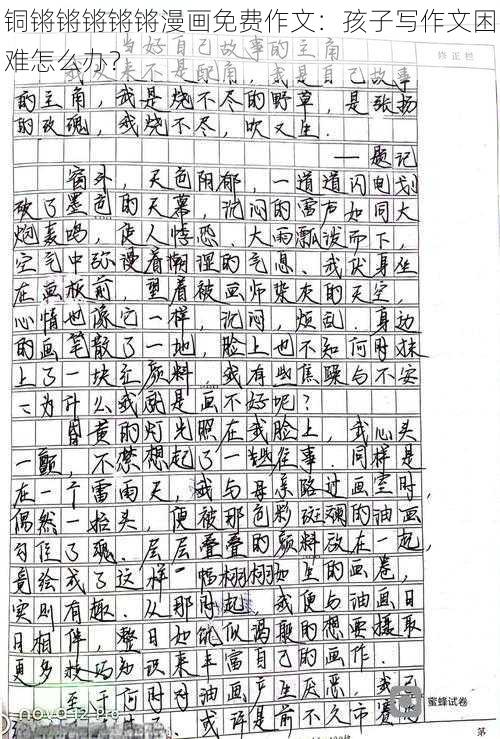 铜锵锵锵锵锵漫画免费作文：孩子写作文困
难怎么办？
当好自己故事的主角
我从来不是配角，我是自己故事
的主角，我是烧不尽的野草，是张扬
的玫瑰，我烧不尽，吹又生.
——题记
窗外，天色阴郁，一道道闪电划
破了墨色的天幕，沉闷的雷声如同大
炮轰鸣，使人悸恐.大雨瓢泼而下，
空气中弥漫着潮湿的气息.我伏身坐
在画板前，望着被画师染灰的天空，
心情也像它一样，沉闷，烦乱.身边
的画笔散了一地，脸上也不知何时抹
上了一块红颜料.我有些焦躁与不安
：为什么我就是画不好呢？
昏黄的灯光照在我脸上，我心头
一颤，不禁想起了一些往事.同样是
在一个雷雨天，我与母亲路过画室时，
偶然一抬头，便被那色彩斑斓的油画
勾住了魂.层层叠叠的颜料放在一起，
竟绘成了这样一幅栩栩如生的画卷，
实则有趣.从那时起，我便与油画日
日相伴，整日如饥似渴般的想要摄取
更多技巧知识来丰富自己的画作.
至于何时对油画产生厌恶，我
或许是前不久市赛的
修正栏
蜜蜂试卷
第